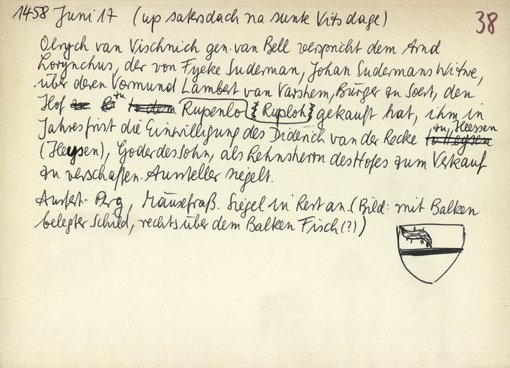 1458 Juni 17 (up satersdach na sunte Vits dage) 38
Olrych van Vischnich gen. van Bell verspricht dem Arnd
Lorynchus, der von Fyeke Suderman, Johan Sudermans Witwe,
über deren Vormund Lambert van Varshem, Bürger zu Soest, den
Hof zu Rupenlo {Ruploh} gekauft hat, ihm in
Jahresfrist die Einwilligung des Diderich van der Recke zu Heessen
(Heysen), Goderdes Sohn, als Lehnsherrn des Hofes zum Verkauf
zu verschaffen. Aussteller siegelt.
Ausfert. Perg., Mäusefraß. Siegel in Rest an (Bild: mit Balken
belegter Schild, rechts über dem Balken Fisch (?))